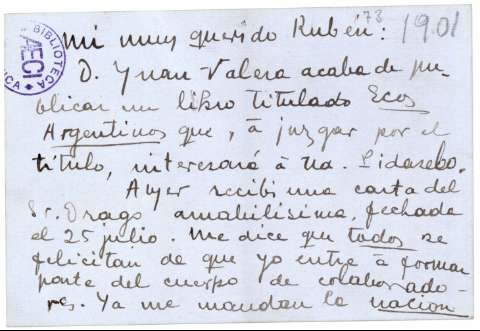 Mi muy querido Rubén: 73 1901
D. Yuan Valera acaba de pu-
blicar un libro titulado Ecos
Argentinos que, à juzgar por el
título, interesará à Ud. Lidaselo.
Ayer recibi una carta del
Sr. Drago amabilisima, fechada
el 25 julio. Me dice que todos se
felicitan de que yo entre à formar
parte del cuerpo de colaborado-
res. Ya me mandan la nacion
BIBLIOTECA
AECI